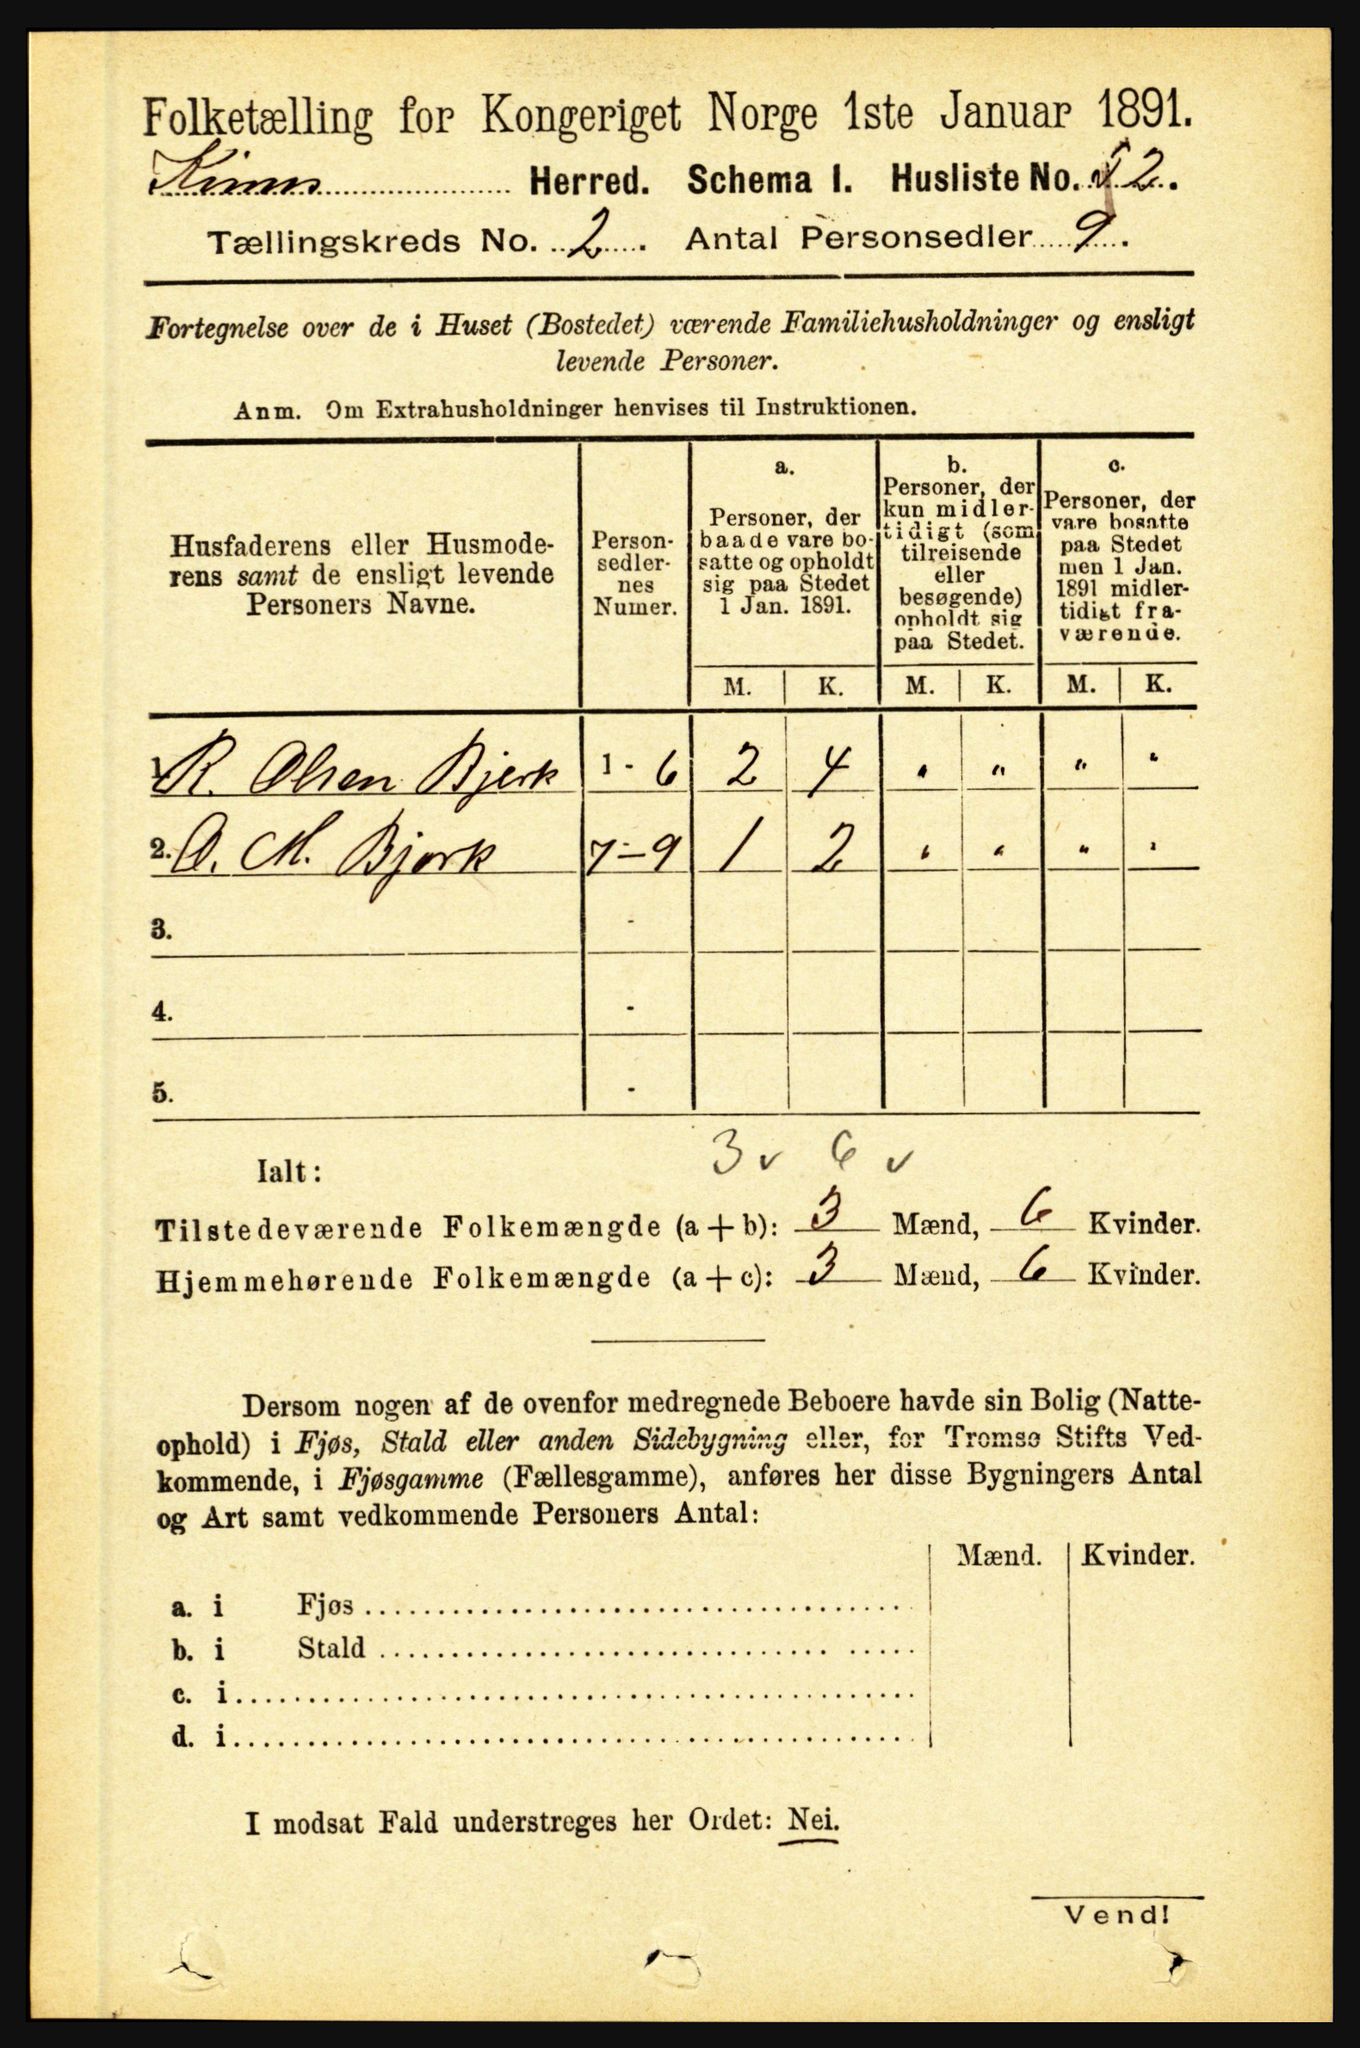 Folketælling for Kongeriget Norge 1ste Januar 1891.
Kinn Herred. Schema I. Husliste No. 2.
Tællingskreds No. 2. Antal Personsedler 9.
Fortegnelse over de i Huset (Bostedet) værende Familiehusholdninger og ensligt
levende Personer.
Anm. Om Extrahusholdninger henvises til Instruktionen.
Husfaderens eller Husmode-
rens samt de ensligt levende
Personers Navne.
Person-
sedler-
nes
Numer.
a.
Personer, der
baade vare bo-
satte og opholdt
sig paa Stedet
1 Jan. 1891.
b.
Personer, der
kun midler-
tidigt (som
tilreisende
eller
besøgende)
opholdt sig
paa Stedet.
c.
Personer, der
vare bosatte
paa Stedet
men 1 Jan.
1891 midler-
tidigt fra-
værende.
M. K. M. K. M. K.
1. R. Olsen Bjerk 1 - 6 2 4 " " " "
2. O. M. Bjørk 7 - 9 1 2 " " " "
3. -
4. -
5. -
3 v 6 v
Ialt:
Tilstedeværende Folkemængde (a + b): 3 Mænd, 6 Kvinder.
Hjemmehørende Folkemængde (a + c): 3 Mænd, 6 Kvinder.
Dersom nogen af de ovenfor medregnede Beboere havde sin Bolig (Natte-
ophold) i Fjøs, Stald eller anden Sidebygning eller, for Tromsø Stifts Ved-
kommende, i Fjøsgamme (Fællesgamme), anføres her disse Bygningers Antal
og Art samt vedkommende Personers Antal:
Mænd. Kvinder.
a. i Fjøs
b. i Stald
c. i
d. i
I modsat Fald understreges her Ordet: Nei.
Vend!